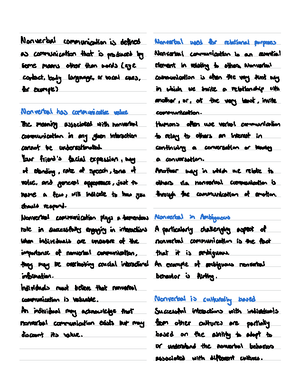 Nonverbal communication is defined
as communication that is produced by
some means other than words (eye
contact, body language, or vocal cues,
for example)
Nonverbal has communicative value
The meaning associated with nonverbal
communication in any given interaction
cannot be underestimated.
Your friend's facial expression, way
of standing, rate of speech, tone of
voice, and general appearance, just to
name a few, will indicate to how you
should respond.
Nonverbal communication plays a tremendous
role in successfully engaging in interactions
When individuals are unaware of the
importance of nonverbal communication,
they may be overlooking crucial interactional
information.
Individuals must believe that nonverbal
communication is valuable.
An individual may acknowledge that
nonverbal communication exists but may
discount its value.
Nonverbal used for relational purposes
Nonverbal communication is an essential
element in relating to others. Nonverbal
communication is often the very first way
in which we invite a relationship with
another, or, at the very least, invite
communication.
Humans often use verbal communication
to relay to others an interest in
continuing a conversation or leaving
a conversation.
Another way in which we relate to
others via nonverbal communication is
through the communication of emotion.
Nonverbal is Ambiguous
A particularly challenging aspect of
nonverbal communication is the fact
that it is ambiguous.
An example of ambiguous nonverbal
behavior is flirting.
Nonverbal is culturally based
Successful interactions with individuals
from other cultures are partially
based on the ability to adapt to
or understand the nonverbal behaviors
associated with different cultures.